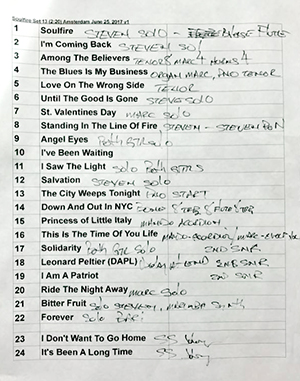 Soulfire Set 13 (2:20) Amsterdam June 25, 2017 v1
1 Soulfire STEVEN SOLO -
2 I'm Coming Back STEVEN SOLO
3 Among The Believers TENOR 8 MARC 4 HORNS 4
4 The Blues Is My Business ORGAN MARC, PNO TENOR
5 Love On The Wrong Side TENOR
6 Until The Good Is Gone STEVE SOLO
7 St. Valentines Day MARC SOLO
8 Standing In The Line Of Fire STEVEN -
9 Angel Eyes SOLO
10 I've Been Waiting
11 I Saw The Light SOLO Both GTRS
12 Salvation STEVEN SOLO
13 The City Weeps Tonight PNO START
14 Down And Out In NYC 8
15 Princess of Little Italy ACCORDION
16 This Is The Time Of You Life
17 Solidarity Both Gtr Solo SND SNR
18 Leonard Peltier (DAPL) SNR
19 I Am A Patriot SNR
20 Ride The Night Away MARC Solo
21 Bitter Fruit Solo
22 Forever Solo
23 I Don't Want To Go Home SS
24 It's Been A Long Time SS